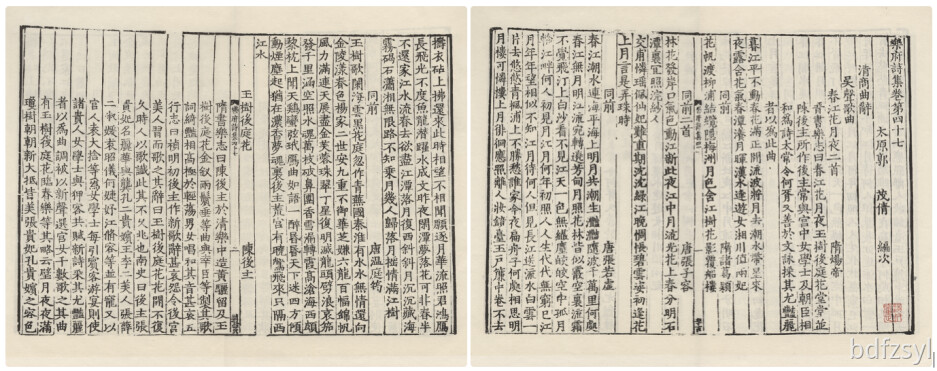 樂府詩集卷第四十七
太原郭 茂倩 編次
清商曲辭
吳聲歌曲
春江花月夜二首 隋煬帝
晉書樂志曰春江花月夜玉樹後庭花堂堂並
陳後主所作後主常與宮中女學士及朝臣相
和為詩太常令何胥又善於文詠採其尤豔麗
者以為此曲
暮江平不動春花滿正開流波將月去潮水帶星來
夜露含花氣春潭瀁月暉漢水逢遊女湘川值兩妃
同前 隋諸葛穎
花帆渡柳浦結纜隱梅洲月色含江樹花影覆船樓
同前二首 唐張子容
林花發岸口氣色動江新此夜江中月流光花上春分明石
潭裏宜照浣紗人
交甫憐瑤珮仙妃難重期沈沈綠江晚惆悵碧雲姿初逢花
上月言是弄珠時
同前 唐張若虛
春江潮水連海平海上明月共潮生灩灩隨波千萬里何處
春江無月明江流宛轉遶芳甸月照花林皆似霰空裏流霜
不覺飛汀上白沙看不見江天一色無纖塵皎皎空中孤月
輪江畔何人初見月江月何年初照人人生代代無窮已江
月年年望相似不知江月待何人但見長江送流水白雲一
片去悠悠青楓浦上不勝愁誰家今夜扁舟子何處相思明
月樓可憐樓上月徘徊應照離人妝鏡臺玉戶簾中卷不去
擣衣砧上拂還來此時相望不相聞願逐月華流照君鴻鴈
長飛光不度魚龍潛躍水成文昨夜閒潭夢落花可憐春半
不還家江水流春去欲盡江潭落月復西斜斜月沉沉藏海
霧碣石瀟湘無限路不知乘月幾人歸落月搖情滿江樹
同前 唐溫庭筠
玉樹歌闌海雲黑花庭忽作青蕪國秦淮有水水無情還向
金陵漾春色楊家二世安九重不御華芝嫌六龍百幅錦帆
風力滿連天展盡金芙蓉珠翠丁星復明滅龍頭劈浪哀笳
發千里涵空照水魂萬枝破鼻團香雪漏轉霞高滄海西頗
黎枕上聞天雞蠻弦代鴈曲如語一醉昏昏天下迷四方傾
動煙塵起猶在濃香夢魂裏後主荒宮有曉鶯飛來只隔西
江水
玉樹後庭花 陳後主
隋書樂志曰陳後主於清樂中造黃驪留及玉
樹後庭花金釵兩鬢垂等曲與幸臣等製其歌
詞綺豔相高極於輕蕩男女唱和其音甚哀五
行志曰禎明初後主作新歌辭甚哀怨令後宮
美人習而歌之其辭曰玉樹後庭花花開不復
久時人以歌讖此其不久兆也南史曰後主張
貴妃名麗華與龔孔二貴嬪王李二美人張薛
二淑媛袁昭儀何婕妤江修容等並有寵又以
宮人袁大捨等為女學士每引賓客遊宴則使
諸貴人女學士與狎客共賦新詩采其尤豔麗
者以為曲調被以新聲選宮女千數歌之其曲
有玉樹後庭花臨春樂等其略云璧月夜夜滿
瓊樹朝朝新大抵皆美張貴妃孔貴嬪之容色
bdfzsyl